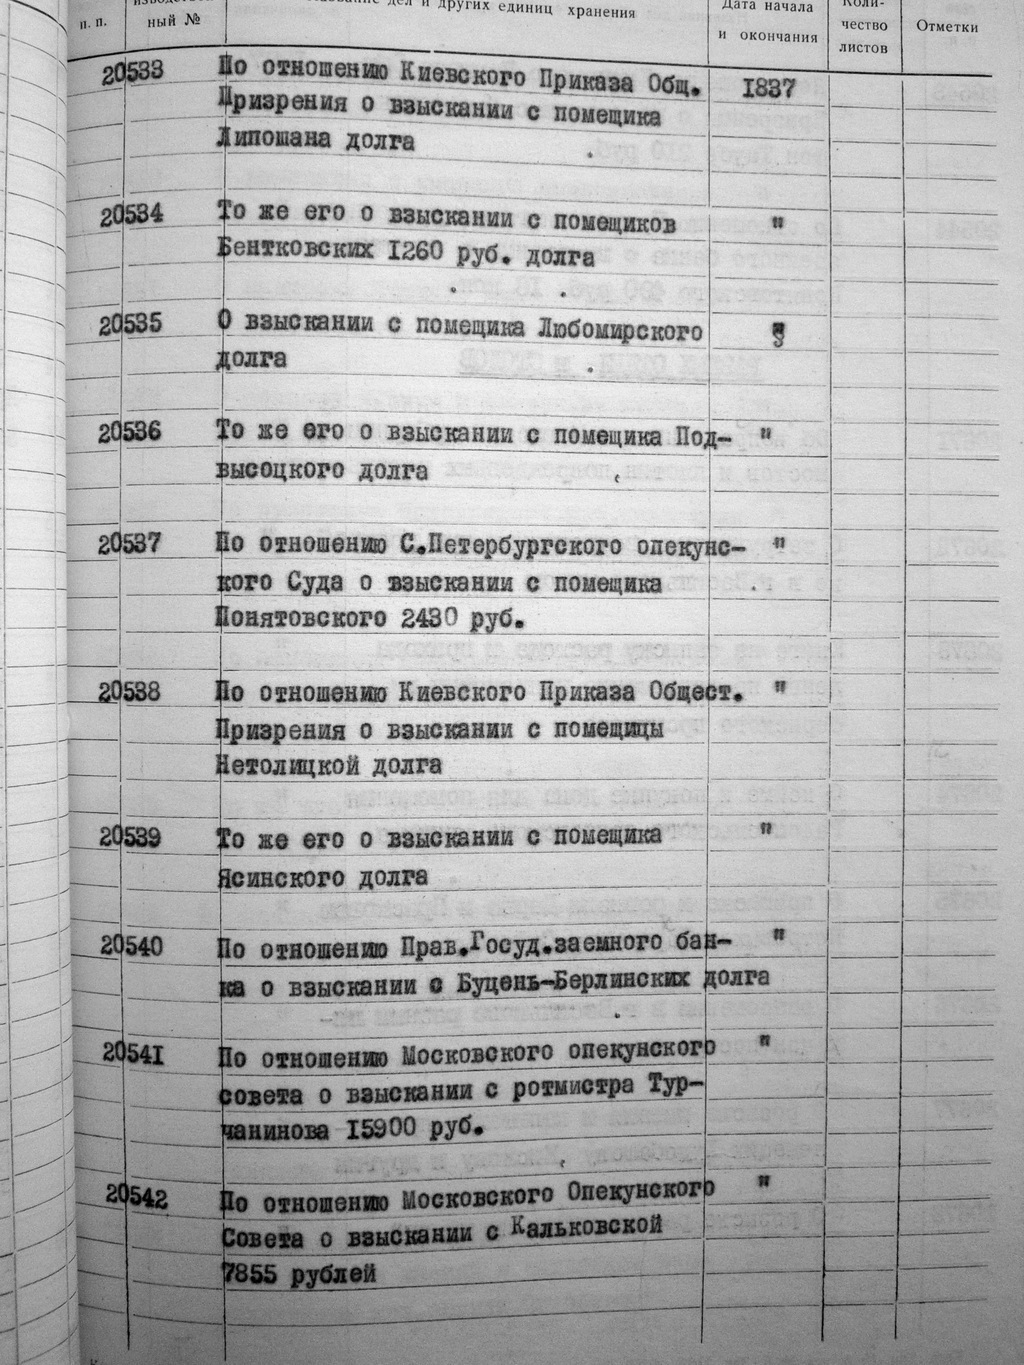 п. п.
ный №
дел и других единиц хранения
Дата начала
и окончания
Коли-
чество
листов
Отметки
20533 По отношению Киевского Приказа Общ. 1837
Призрения о взыскании с помещика
Липошана долга
20534 То же его о взыскании с помещиков "
Бентковских 1260 руб. долга
20535 О взыскании с помещика Любомирского "
долга
20536 То же его о взыскании с помещика Под- "
высоцкого долга
20537 По отношению С.Петербургского опекунс- "
кого Суда о взыскании с помещика
Понятовского 2430 руб.
20538 По отношению Киевского Приказа Общест. "
Призрения о взыскании с помещицы
Нетолицкой долга
20539 То же его о взыскании с помещика "
Ясинского долга
20540 По отношению Прав.Госуд.заемного бан- "
ка о взыскании с Буцень-Берлинских долга
20541 По отношению Московского опекунского "
совета о взыскании с ротмистра Тур-
чанинова 15900 руб.
20542 По отношению Московского Опекунского "
Совета о взыскании с Кальковской
7855 рублей